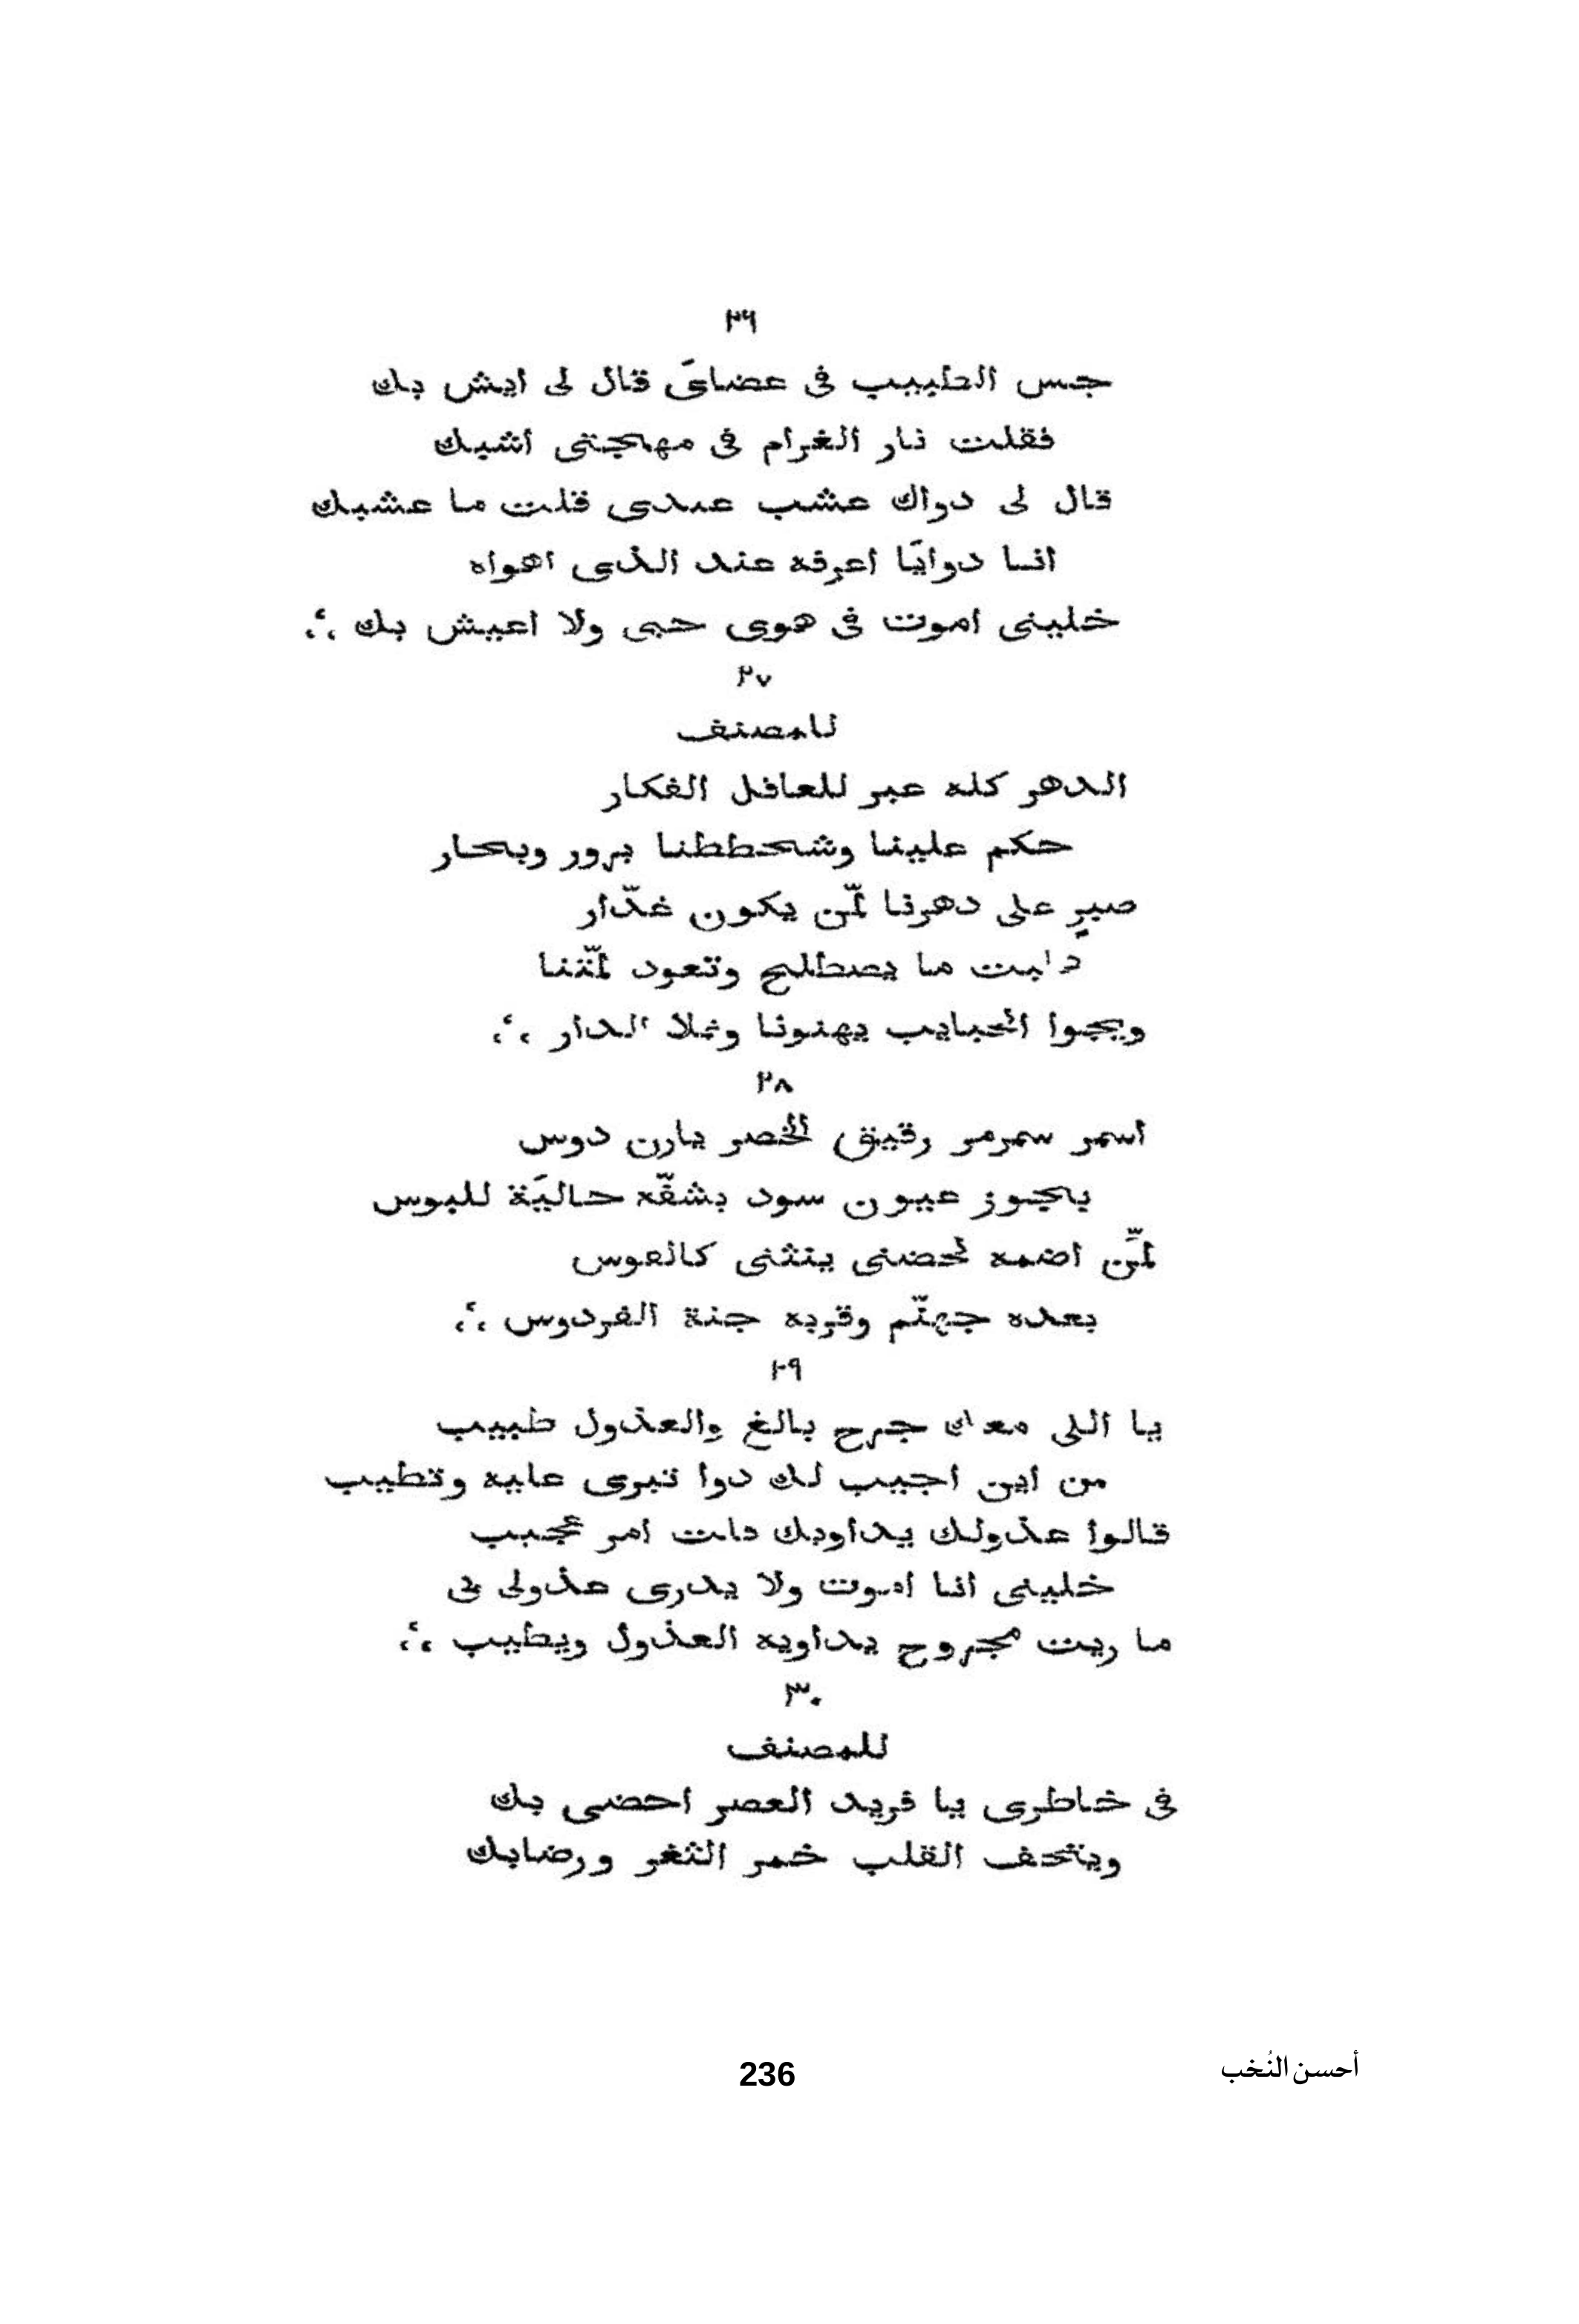 ٢٦
جس الطبيب فى عضاىَ قال لى ايش بك
فقلت نار الغرام فى مهجتى اشبك
قال لى دواك عشب عندى قلت ما عشبك
انا دوايَا اعرفه عند الذى اهواه
خلينى اموت فى هوى حبى ولا اعيش بك
٢٧
للمصنف
الدهر كله عبر للعاقل الفكار
حكم علينا وشحططنا برور وبحار
صبرٍ على دهرنا لمّن يكون غدّار
ما يصطلح وتعود لمّتنا
ويجوا الحبايب يهنونا ونملا الدار
٢٨
اسمر سمرمر رقيق الخصر يارن دوس
بجوز عيون سود بشفّه حاليَة للبوس
لمّن اضمه لحضنى ينثنى كالعوس
بعده جهنّم وقربه جنة الفردوس
٢٩
يا اللى معاك جرح بالغ والعذول طبيب
من اين اجيب لك دوا تبرى عليه وتطيب
قالوا عذولك يداويك قلت امر عجيب
خلينى انا اموت ولا يدرى عذولى بى
ما ريت مجروح يداويه العذول ويطيب
٣٠
للمصنف
فى خاطرى يا فريد العصر احضى بك
ويتحف القلب خمر الثغر ورضابك
236
أحسن النُخب